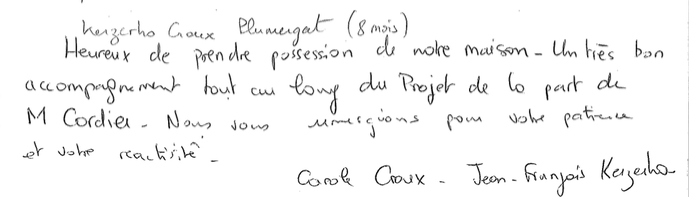 Kerzerho Croux Plumergat (8 mois)
Heureux de prendre possession de notre maison - Un très bon
accompagnement tout au long du Projet de la part de
M Cordier - Nous vous remercions pour votre patience
et votre réactivité -
Carole Croux - Jean-François Kerzerho